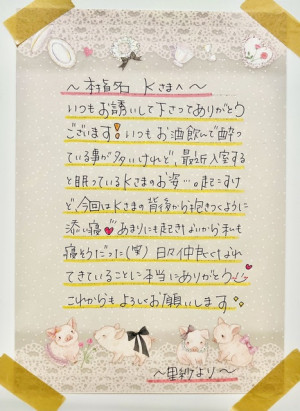 〜本指名 Kさまへ〜
いつもお誘いして下さってありがとう
ございます！いつもお酒飲んで酔っ
ている事が多いけれど、最近入室する
と眠っているKさまのお姿…。起こすけ
ど、今回はKさまの背後から抱きつくように
添い寝♥あまりにも起きないから私も
寝そうだった(笑) 日々仲良くなれ
てきていることに本当にありがとう
これからもよろしくお願いします
〜里紗より〜